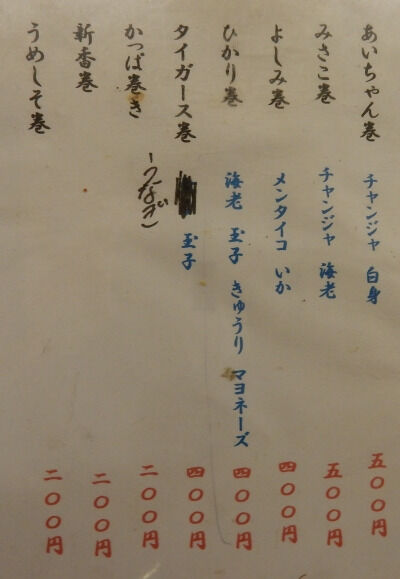 あいちゃん巻 チャンジャ 白身 五〇〇円
みさこ巻 チャンジャ 海老 五〇〇円
よしみ巻 メンタイコ いか 四〇〇円
ひかり巻 海老 玉子 きゅうり マヨネーズ 四〇〇円
タイガース巻 玉子 四〇〇円
うなぎ
かっぱ巻き 二〇〇円
新香巻 二〇〇円
うめしそ巻 二〇〇円